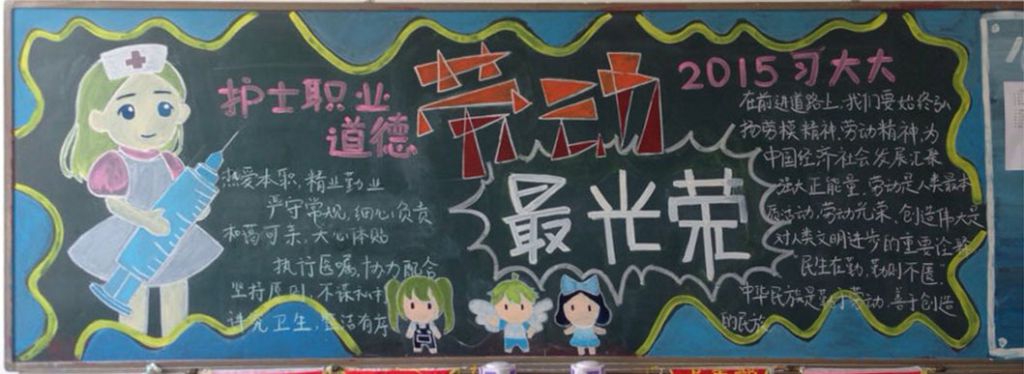 护士职业
道德
热爱本职，精业勤业
严守常规，细心负责
和蔼可亲，关心体贴
执行医嘱，协力配合
坚持原则，不谋私利
讲究卫生，整洁有序
劳动
最光荣
2015习大大
在前进道路上，我们要始终弘
扬劳模精神，劳动精神，为
中国经济社会发展汇聚
强大正能量，劳动是人类最本
质活动，劳动光荣，创造伟大是
对人类文明进步的重要诠释
民生在勤，勤则不匮
中华民族是勤于劳动，善于创造
的民族